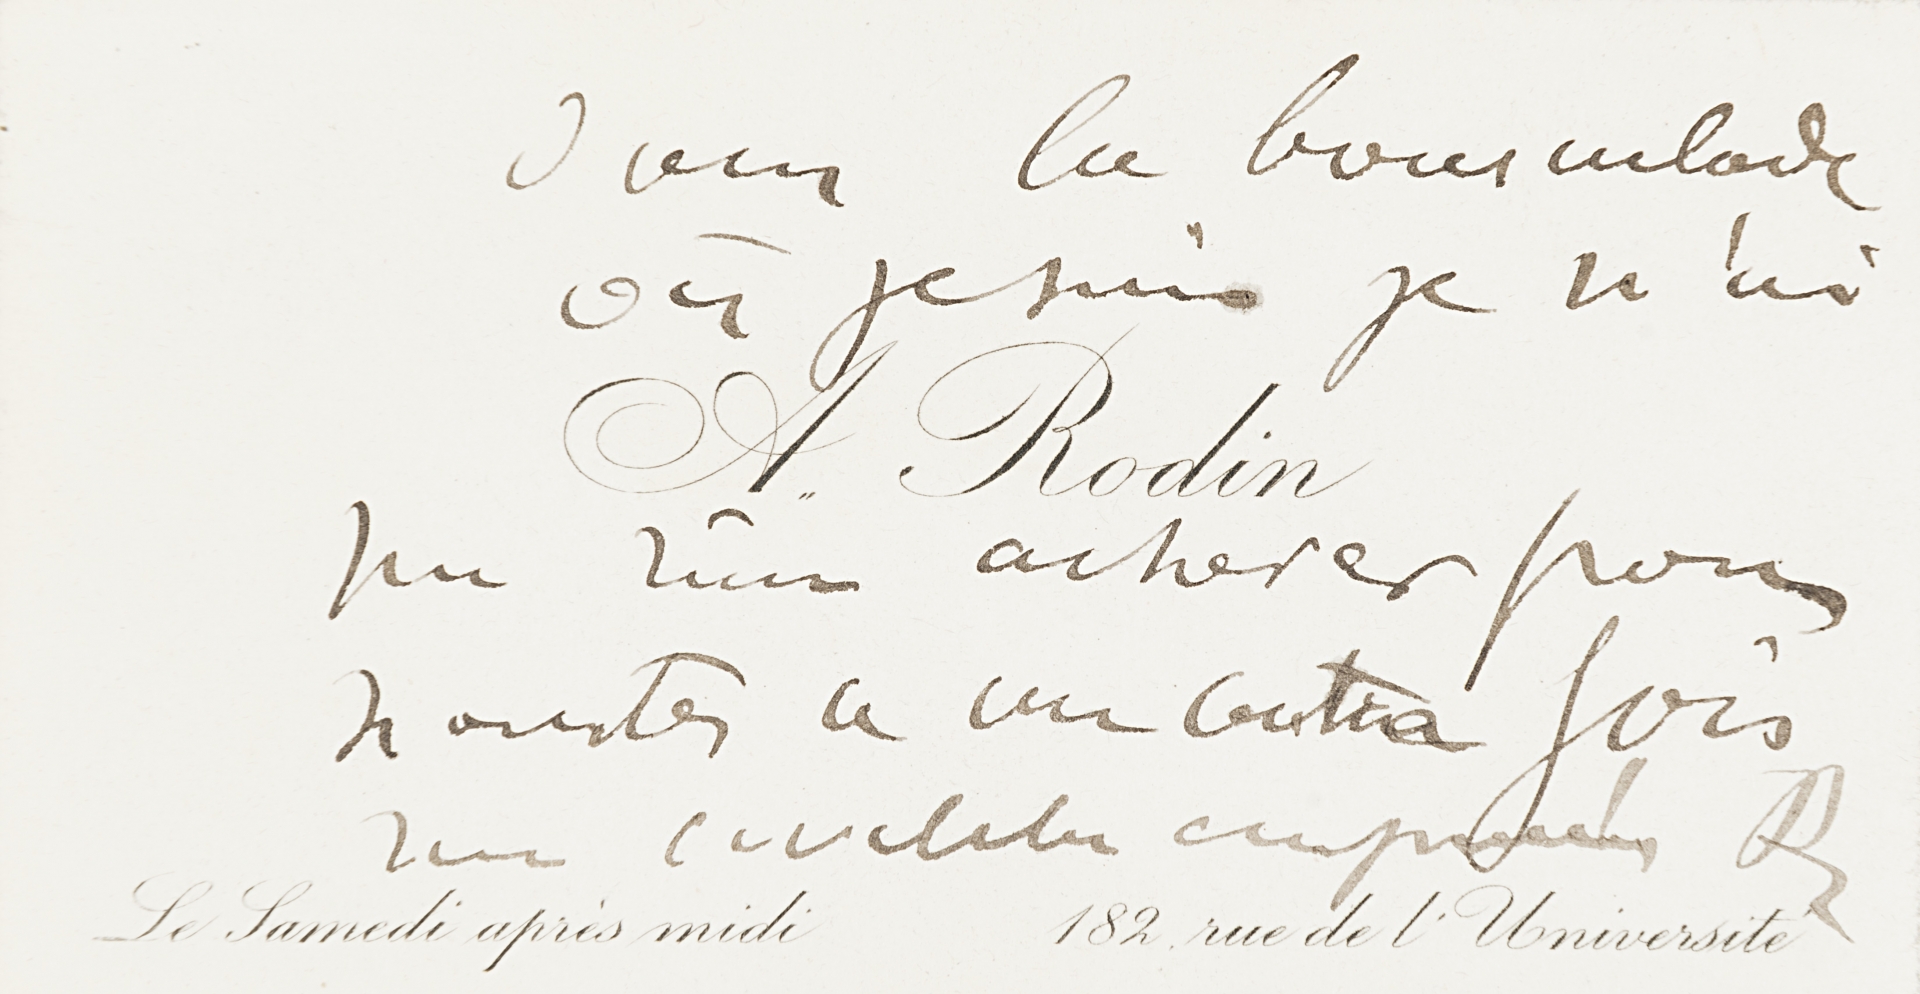 Dans la bousculade
où je suis je n'ai
A. Rodin
pu rien achever pour
a une autre fois
empressés R
Le Samedi après midi 182, rue de l'Université